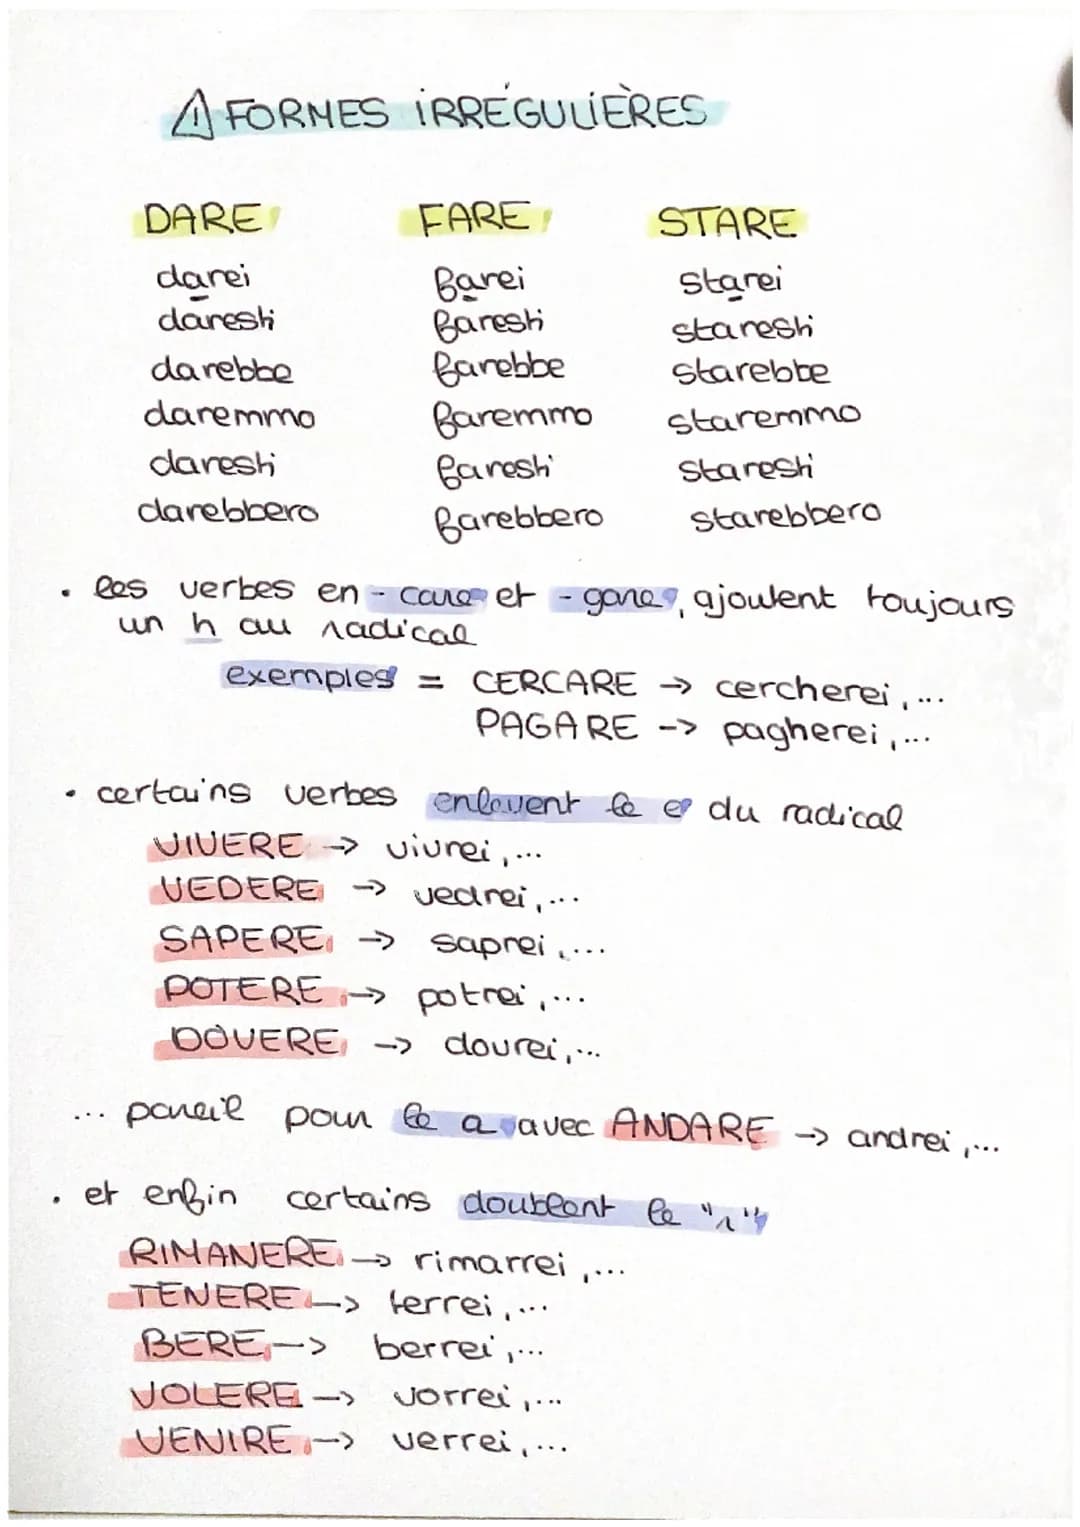 ⚠ FORMES IRRÉGULIÈRES
DARE FARE STARE
darei farei starei
daresti faresti staresti
darebbe farebbe starebbe
daremmo faremmo staremmo
daresti faresti staresti
darebbero farebbero starebbero
• les verbes en -care et -gare, ajoutent toujours
un h au radical
exemples = CERCARE → cercherei,...
PAGARE → pagherei,...
• certains verbes enlèvent le e du radical
VIVERE → vivrei,...
VEDERE → vedrei,...
SAPERE → saprei,...
POTERE → potrei,...
DOVERE → dovrei,...
... pareil pour le a avec ANDARE → andrei,...
• et enfin certains doublent le "r"
RIMANERE → rimarrei,...
TENERE → terrei,...
BERE → berrei,...
VOLERE → vorrei,...
VENIRE → verrei,...